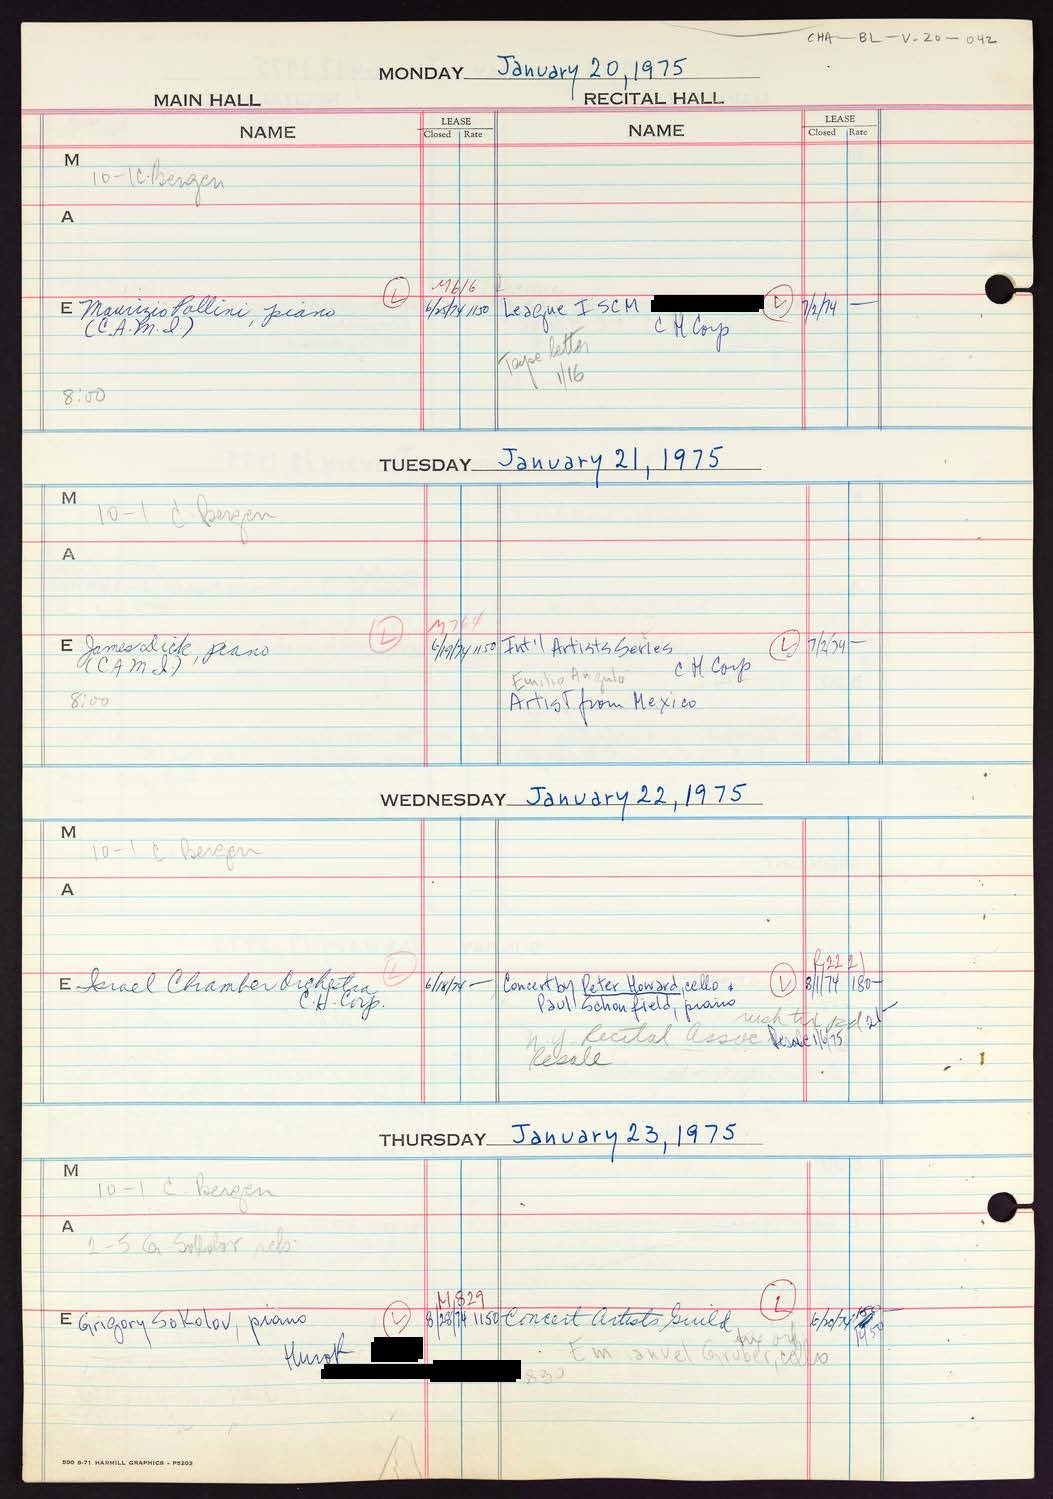 CHA-BL-V-20-042
MONDAY January 20, 1975
MAIN HALL RECITAL HALL
NAME LEASE Closed Rate NAME LEASE Closed Rate
M
10-1 C. Bergen
A
L M616
E Maurizio Pollini, piano 6/25/74 1150 League ISCM L 7/2/74 —
(C.A.M.I) C H Corp
Tape letter
1/16
8:00
TUESDAY January 21, 1975
M
10-1 C Bergen
A
L M764
E James Dick, piano 6/19/74 1150 Int'l Artists Series L 7/2/74 —
(CAMI) C H Corp
Emilio Angulo
8:00 Artist from Mexico
WEDNESDAY January 22, 1975
M
10-1 C Bergen
A
R2221
E Israel Chamber Orchestra L 6/18/74 — Concert by Peter Howard, cello + L 8/1/74 180—
C.H. Corp. Paul Schonfield, piano
pd 25—
N.Y. Recital Assoc Resale 1/6/75
Resale
THURSDAY January 23, 1975
M
10-1 C. Bergen
A
2-5 G. Sokolov reh.
M829 L
E Grigory Sokolov, piano L 8/28/74 1150 Concert Artists Guild 6/20/74
Hurok Emanuel Gruber, cello
830
500 8-71 HARMILL GRAPHICS - P5203